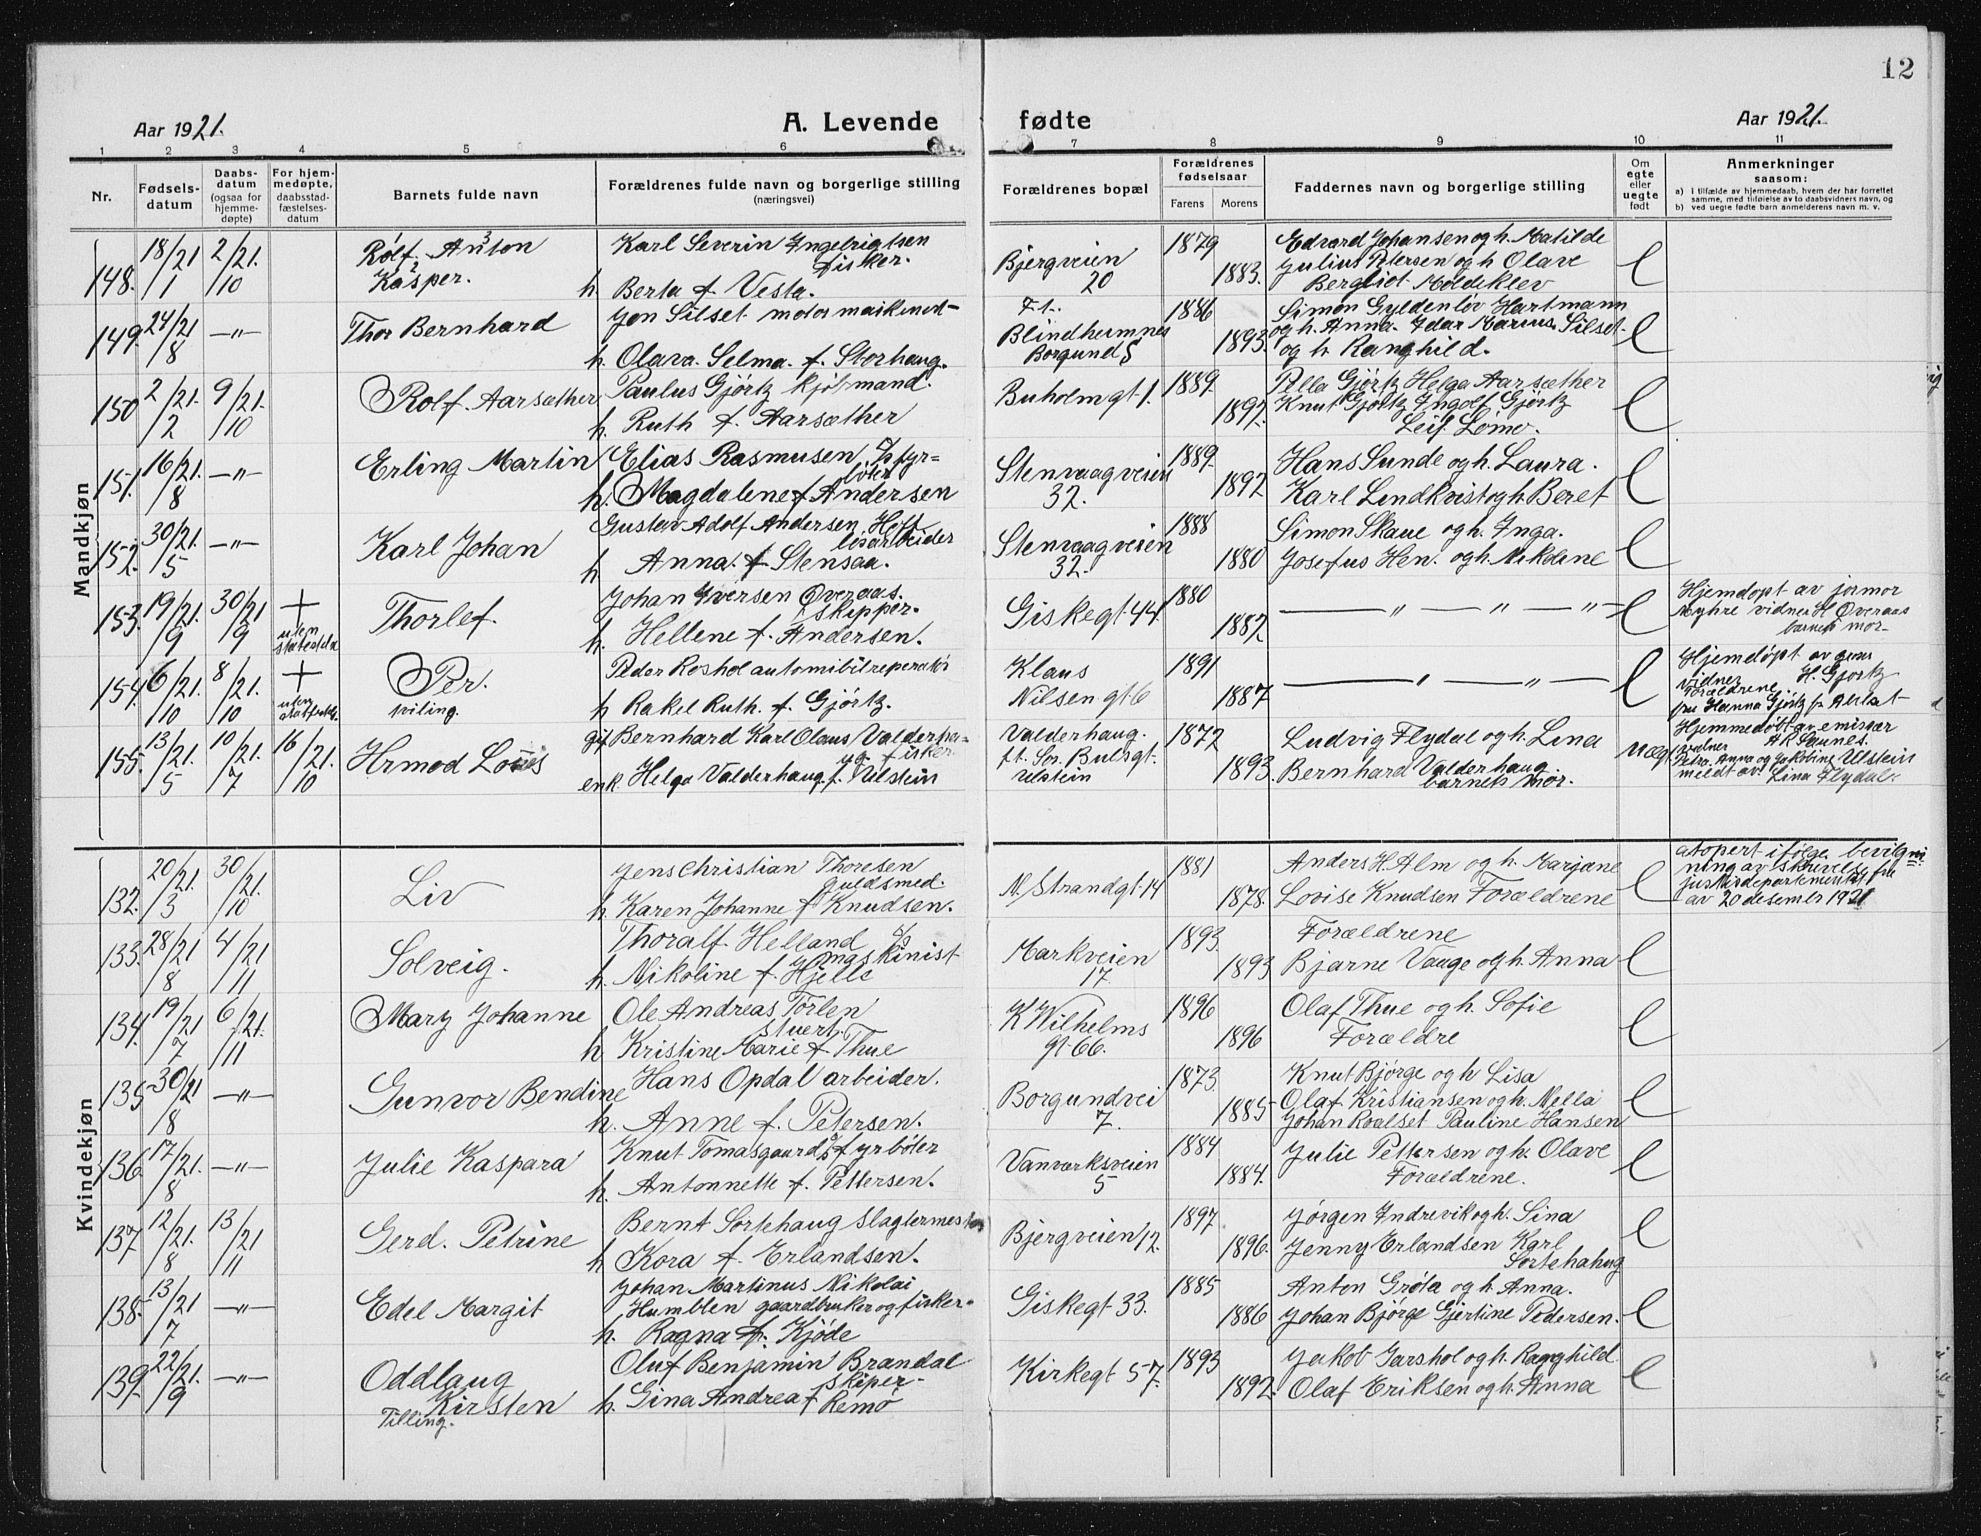 12
Aar 1921.
A. Levende fødte
Aar 1921.
1 2 3 4 5 6 7 8 9 10 11
Nr.
Fødsels-
datum
Daabs-
datum
(ogsaa for
hjemme-
døpte)
For hjem-
medøpte,
daabsstad-
fæstelses-
datum
Barnets fulde navn
Forældrenes fulde navn og borgerlige stilling
(næringsvei)
Forældrenes bopæl
Forældrenes
fødselsaar
Farens Morens
Faddernes navn og borgerlige stilling
Om
egte
eller
uegte
født
Anmerkninger
saasom:
a) i tilfælde av hjemmedaab, hvem der har forrettet
samme, med tilføielse av to daabsvidners navn, og
b) ved uegte fødte barn anmelderens navn m. v.
Mandkjøn
148. 18/21 1 2/21. 10
Rolf Anton 3
Kasper. 2
Karl Severin Ingebrigtsen
fisker.
h. Berta f. Vesta.
Bjergveien
20
1879
1883.
Edvard Johansen og h. Matilde
Julius Petersen og h Olave
Bergliot Moldeklev
149. 24/21 8 -"-
Thor Bernhard
Jon Silset
h. Olava Selma f. Storhaug.
Blindheimnes
Borgund
1886
1893.
Simon Gyldenløv Hartmann
og h. Anna. Idar Marius Silset
og h Ranghild.
150 2/21. 2 9/21. 10
Rolf Aarsæther
Paulus Gjörtz kjøbmand.
h. Ruth f. Aarsæther
Buholmgt 1.
1889.
1897.
Pella Gjörtz Helga Aarsæther
Knut Gjörtz Ingolf Gjörtz
Leif Lomo.
151. 16/21. 8 -"-
Erling Martin
Elias Rasmusen fyr=
böter
h. Magdalene f Andersen
Stenvaagveien
32.
1889.
1892
Hans Sunde og h. Laura.
Karl Lindkvist og h Beret
152. 30/21. 5 -"-
Karl Johan
Gustav Adolf Andersen
h Anna. f. Stensaa.
Stenvaagveien
32.
1888
1880
Simon Skaue og h. Inga.
Josefus Hen. og h. Nikoline
153. 19/21. 9 30/21 9 + uten
Thorlef.
Johan Iversen Overaas.
skipper.
h. Hellene f. Andersen.
Giskegt 44.
1880
1887.
— " — " — " —
Hjemdøpt av jormor
Myhre vidner H Overaas
barnets mor-
154. 6/21. 10 8/21. 10 + uten
Per.
tviling.
Peder Roshol automibilreperatör
h Rakel Ruth. f. Gjörtz.
Klaus
Nilsen gt. 6
1891
1887
— " — " —
Hjemdøpt av
vidner H. Gjörtz
Forældrene
fru Hanna Gjörtz
155. 13/21. 5 10/21. 7 16/21. 10
Hrmod Loues
gif Bernhard Karl Olaus Valderha=
ug fisker
enk. Helga Valderhaug f. Ulstein
Valderhaug.
Ulstein
1872
1893.
Ludvig Flydal og h. Lina
Bernhard Valderhaug
barnets mor.
Uægt
Hjemmedöbt av emisær
vidner
Petra. Anna og Jakobine Ulstein
meldt av Lina Flydal.
Kvindekjøn
132. 20/21. 3 30/21. 10
Liv
Jens Christian Thoresen
guldsmed.
h Karen Johanne f Knudsen.
N. Strandgt 14
1881
1878.
Anders H. Alm og h. Marjane
Lovise Knudsen Forældrene
adopert ifölge bevilgni
ning av skrivelse fra
justisdepartementet
av 20 desember 1921
133. 28/21 8 4/21 11
Solveig.
Thoralf Helland
maskinist
h. Nikoline f. Hjelle
Markveien
17.
1893.
1893
Forældrene
Bjarne Vauge og h. Anna
134. 19/21 7 6/21. 11
Mary Johanne
Ole Andreas Törlen
stuert.
h Kristine Marie f Thue
K Wilhelms
gt. 66.
1896
1896
Olaf Thue og h. Sofie
Forældre
135 30/21 8 -"-
Gunvor Bendine
Hans Opdal arbeider.
h. Anne f. Petersen.
Borgundvei
7.
1873
1885
Knut Bjørge og h Lisa
Olaf Kristiansen og h. Mella
Johan Roalset Pauline Hansen
136 17/21. 8 -"-
Julie Kaspara
Knut Tomasgaard fyrböter
h. Antonnette f. Pettersen.
Vanværksveien
5
1884
1884.
Julie Pettersen og h. Olave
Forældrene.
137 12/21 8 13/21 11
Gerd. Petrine
Bernt Sortehaug slagtermester
h Kora f. Erlandsen.
Bjergveien 12.
1897
1896.
Jørgen Indrevik og h. Sina
Jenny Erlandsen Karl
Sortehahug
138. 13/21 7 -"-
Edel Margit
Johan Martinus Nikolai
Humblen gaardbruker og fisker-
h. Ragna f. Kjøde
Giskegt 33.
1885
1886
Anton Gröta og h Anna.
Johan Bjørge Gjertine Pedersen.
139. 22/21. 9 -"-
Oddlaug
Kirsten
Tilling.
Oluf Benjamin Brandal
skiper-
h. Gina Andrea f Remö
Kirkegt 57.
1893
1892.
Jakob Garshol og h. Ranghild
Olaf Eriksen og h. Anna